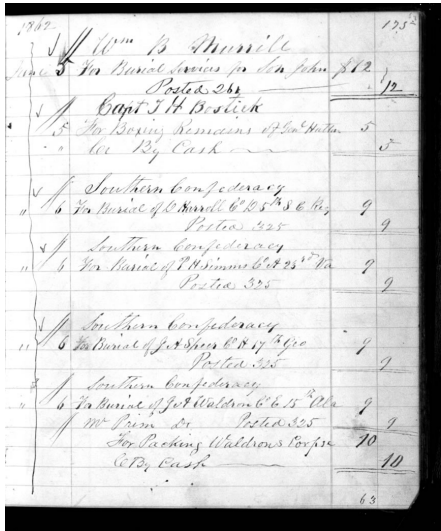 1862 175
Wm B Murrill
June 5 For Burial Services for Son John $12
Posted 264 12
Capt T H Bostick
5 For Boxing Remains of Genl Hatton 5
" Cr By Cash 5
Southern Confederacy
" 6 For Burial of D Harrell Co D 5th S C Reg 9
Posted 325 9
Southern Confederacy
" 6 For Burial of P H Simms Co A 23rd Va 9
Posted 325 9
Southern Confederacy
" 6 For Burial of J A Speer Co H 17th Geo 9
Posted 325 9
Southern Confederacy
" 6 For Burial of J A Waldron Co E 15th Ala 9
Mr Prim Dr Posted 325 9
For Packing Waldrons Corpse 10
Cr By Cash 10
63